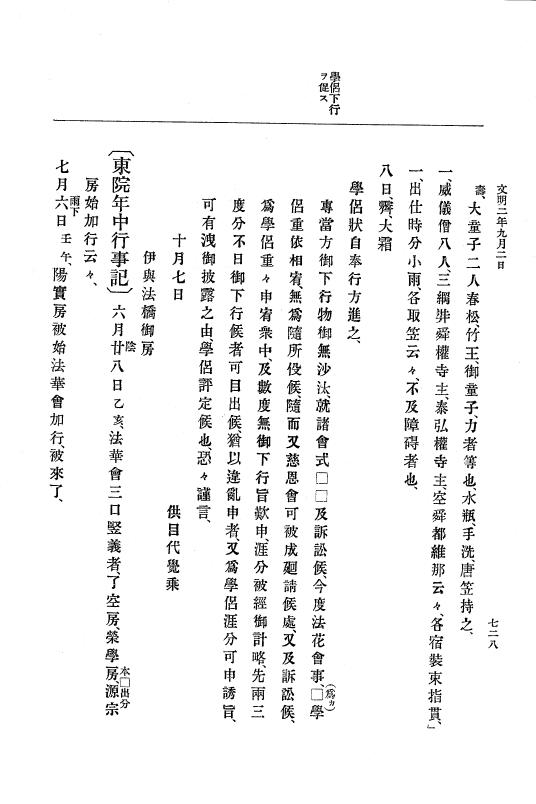 學侶下行
ヲ促ス
文明二年九月二日
七二八
壽、大童子二人春松、竹王、御童子、力者等也、水瓶、手洗、唐笠持之、
一、威儀僧八人、三綱舜舜權寺主、泰弘權寺主、空舜都維那云々、各宿裝束指貫、」
一、出仕時分小雨、各取笠云々、不及障碍者也、
八日霽、大霜
學侶狀自奉行方進之、
專當方御下行物御無沙汰、就諸會式□□及訴訟候、今度法花會事、□學
(爲カ)
侶重依相宥、無爲隨所役候、隨而又慈恩會可被成廻請候處、又及訴訟候、
爲學侶重々申宥衆中、及數度無御下行旨歎申、涯分被經御計略、先兩三
度分不日御下行候者可目出候、猶以違亂申者、又爲學侶涯分可申誘旨、
可有洩御披露之由、學侶評定候也、恐々謹言、
十月七日
供目代覺乘
伊與法橋御房
〔東院年中行事記〕六月廿八日乙亥、法華會三口竪義者、了空房、榮學房、源宗
陰
本□出分
房始加行云々、
七月六日壬午、陽實房被始法華會加行、被來了、
雨下